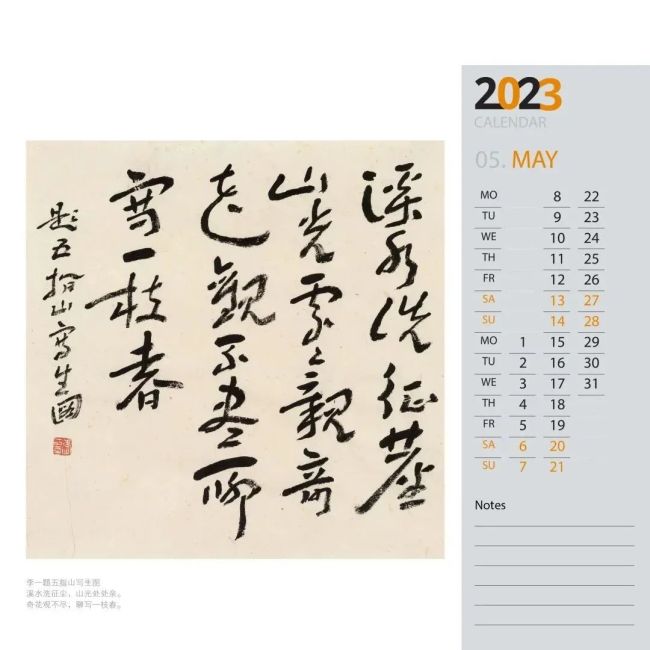 溪水洗征塵
山光處〻親奇
花觀不盡聊
寫一枝春
題五指山寫生圖
李一题五指山写生图
溪水洗征尘，山光处处亲。
奇花观不尽，聊写一枝春。
2023
CALENDAR
05. MAY
MO 8 22
TU 9 23
WE 10 24
TH 11 25
FR 12 26
SA 13 27
SU 14 28
MO 1 15 29
TU 2 16 30
WE 3 17 31
TH 4 18
FR 5 19
SA 6 20
SU 7 21
Notes